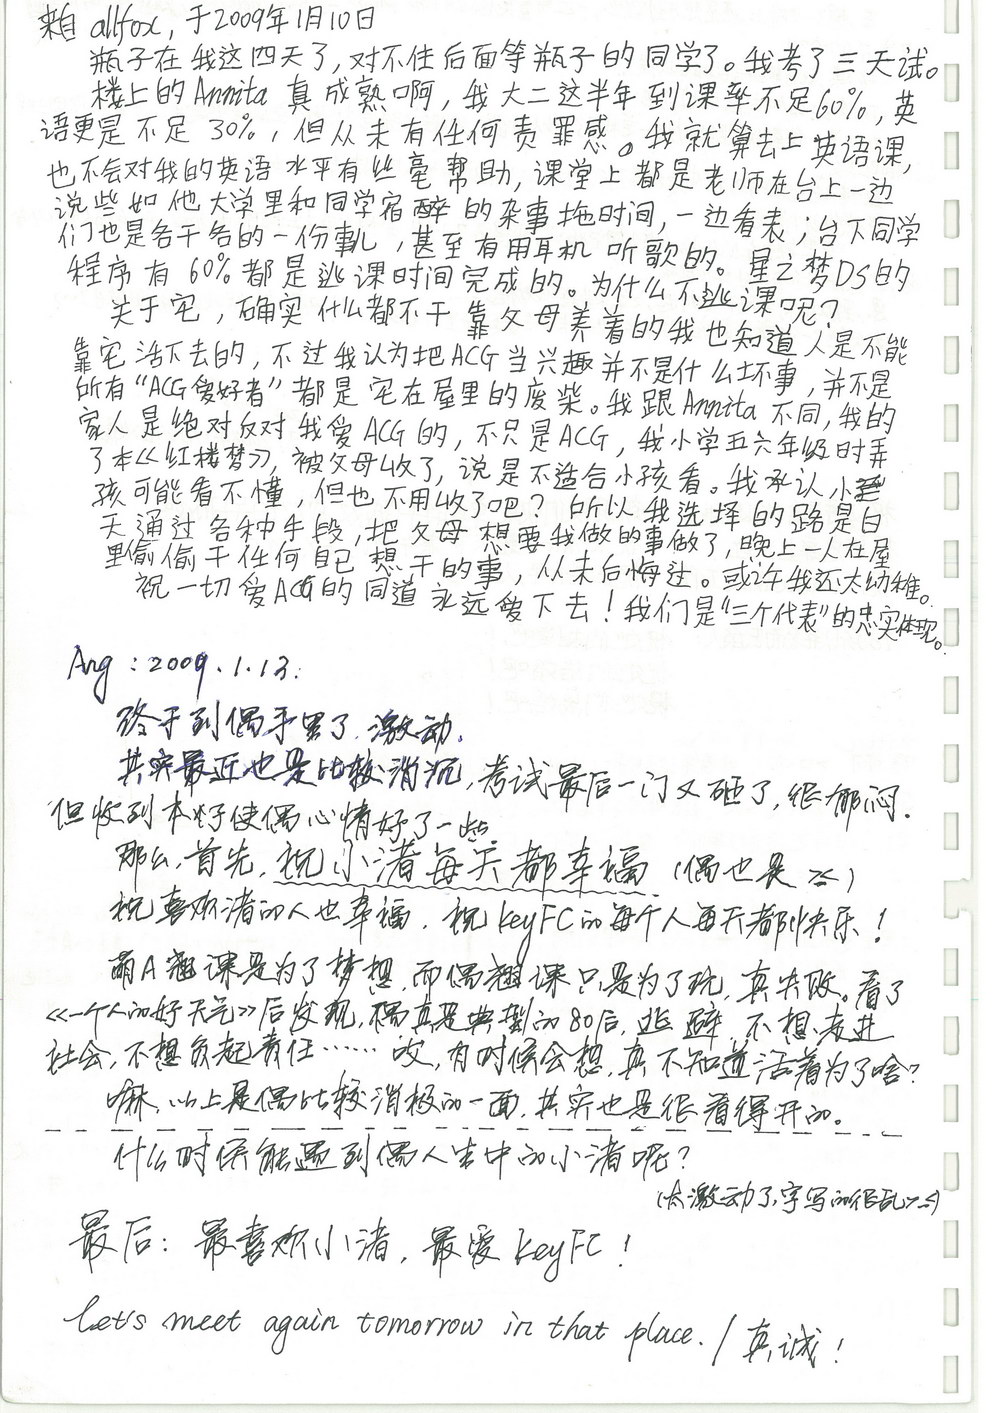 来自 allfox, 于2009年1月10日
瓶子在我这四天了,对不住后面等瓶子的同学了。我考了三天试。
楼上的Annita 真成熟啊,我大二这半年到课率不足60%,英
语更是不足 30%,但从未有任何责罪感。我就算去上英语课,
也不会对我的英语水平有丝毫帮助,课堂上都是老师在台上一边
说些如他大学里和同学宿醉的杂事拖时间,一边看表;台下同学
们也是各干各的一份事儿,甚至有用耳机听歌的。星之梦DS的
程序有 60% 都是逃课时间完成的。为什么不逃课呢?
关于宅,确实什么都不干靠父母养着的我也知道人是不能
靠宅活下去的,不过我认为把ACG当兴趣并不是什么坏事,并不是
所有“ACG爱好者”都是宅在屋里的废柴。我跟Annita不同,我的
家人是绝对反对我爱ACG的,不只是ACG,我小学五六年级时弄
了本《红楼梦》,被父母收了,说是不适合小孩看。我承认小
孩可能看不懂,但也不用收了吧?所以我选择的路是白
天通过各种手段,把父母想要我做的事做了,晚上一人在屋
里偷偷干任何自己想干的事,从未后悔过。或许我还太幼稚。
祝一切爱ACG的同道永远爱下去!我们是“三个代表”的忠实体现。
Ang : 2009.1.13.
终于到偶手里了,激动.
其实最近也是比较消沉,考试最后一门又砸了,很郁闷.
但收到本子使偶心情好了一些
那么,首先,祝小渚每天都幸福 (偶也是 ><)
祝喜欢渚的人也幸福,祝KeyFC的每个人每天都快乐!
萌A翘课是为了梦想,而偶翘课只是为了玩,真失败。看了
《一个人的好天气》后发现,偶真是典型的80后,逃避,不想走进
社会,不想负起责任……哎,有时候会想,真不知道活着为了啥?
嘛,以上是偶比较消极的一面,其实也是很看得开的。
什么时候能遇到偶人生中的小渚呢?
(太激动了,字写的很乱><)
最后:最喜欢小渚,最爱KeyFC!
Let's meet again tomorrow in that place. / 真诚!